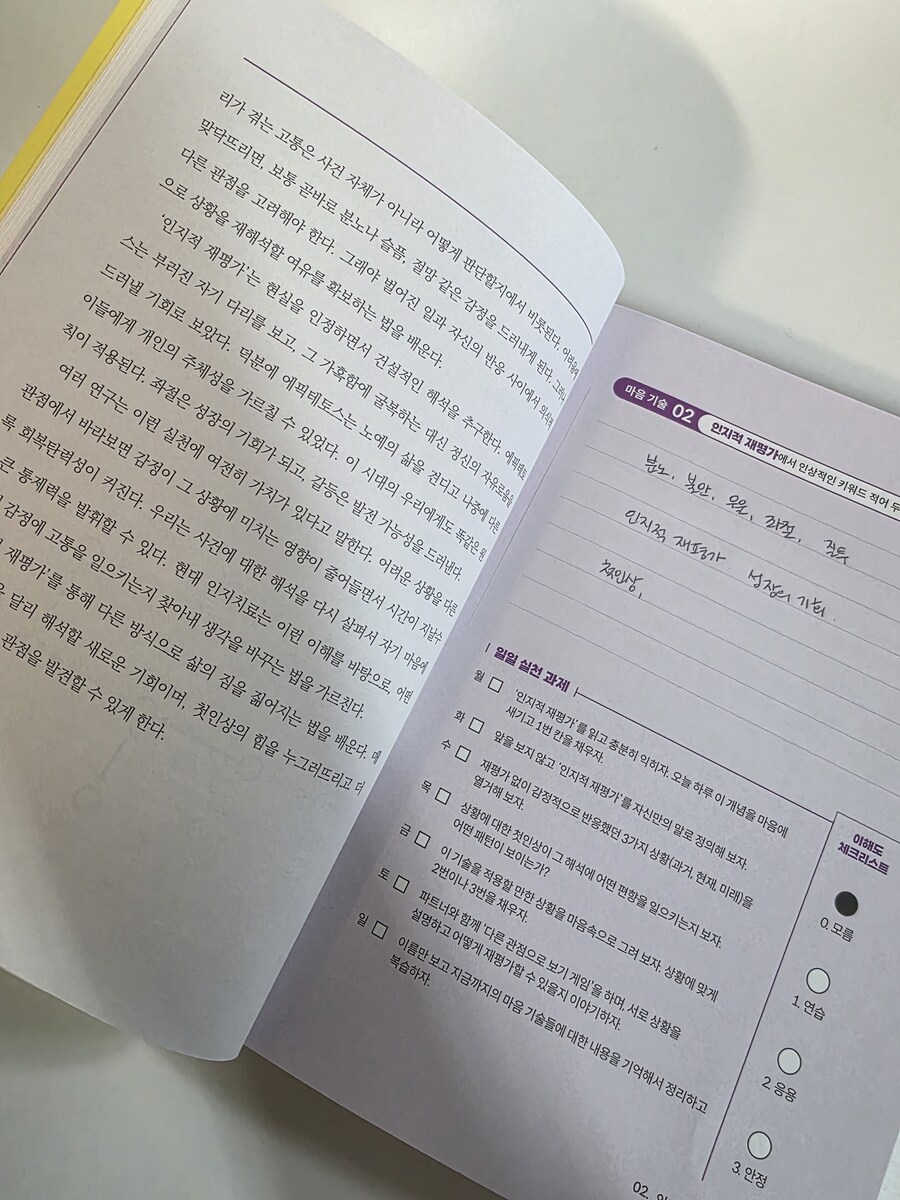 리가 겪는 고통은 사건 자체가 아니라 어떻게 판단할지에서 비롯된다. 어려움에
맞닥뜨리면, 보통 곧바로 분노나 슬픔, 절망 같은 감정을 드러내게 된다. 그러나
다른 관점을 고려해야 한다. 그래야 벌어진 일과 자신의 반응 사이에서 의식적
으로 상황을 재해석할 여유를 확보하는 법을 배운다.
'인지적 재평가'는 현실을 인정하면서 건설적인 해석을 추구한다. 에픽테토
스는 부러진 자기 다리를 보고, 그 가혹함에 굴복하는 대신 정신의 자유로움을
드러낼 기회로 보았다. 덕분에 에픽테토스는 노예의 삶을 견디고 나중에 다른
이들에게 개인의 주체성을 가르칠 수 있었다. 이 시대의 우리에게도 똑같은 원
칙이 적용된다. 좌절은 성장의 기회가 되고, 갈등은 발전 가능성을 드러낸다.
여러 연구는 이런 실천에 여전히 가치가 있다고 말한다. 어려운 상황을 다른
관점에서 바라보면 감정이 그 상황에 미치는 영향이 줄어들면서 시간이 지날수
록 회복탄력성이 커진다. 우리는 사건에 대한 해석을 다시 살펴서 자기 마음에
큰 통제력을 발휘할 수 있다. 현대 인지치료는 이런 이해를 바탕으로, 어떤
감정에 고통을 일으키는지 찾아내 생각을 바꾸는 법을 가르친다.
재평가'를 통해 다른 방식으로 삶의 짐을 짊어지는 법을 배운다. 매
달리 해석할 새로운 기회이며, 첫인상의 힘을 누그러뜨리고 더
관점을 발견할 수 있게 한다.
마음 기술 02 인지적 재평가에서 인상적인 키워드 적어 두
분노, 불안, 우울, 좌절, 질투
인지적 재평가 성장의 기회
첫인상,
일일 실천 과제
월 '인지적 재평가'를 읽고 충분히 익히자. 오늘 하루 이 개념을 마음에
새기고 1번 칸을 채우자.
화 앞을 보지 않고 '인지적 재평가'를 자신만의 말로 정의해 보자.
수 재평가 없이 감정적으로 반응했던 3가지 상황(과거, 현재, 미래)을
열거해 보자.
목 상황에 대한 첫인상이 그 해석에 어떤 편향을 일으키는지 보자.
어떤 패턴이 보이는가?
금 이 기술을 적용할 만한 상황을 마음속으로 그려 보자. 상황에 맞게
2번이나 3번을 채우자.
토 파트너와 함께 '다른 관점으로 보기 게임'을 하며, 서로 상황을
설명하고 어떻게 재평가할 수 있을지 이야기하자.
일 이름만 보고 지금까지의 마음 기술들에 대한 내용을 기억해서 정리하고
복습하자.
이해도
체크리스트
0. 모름
1. 연습
2. 응용
3. 안정
02.